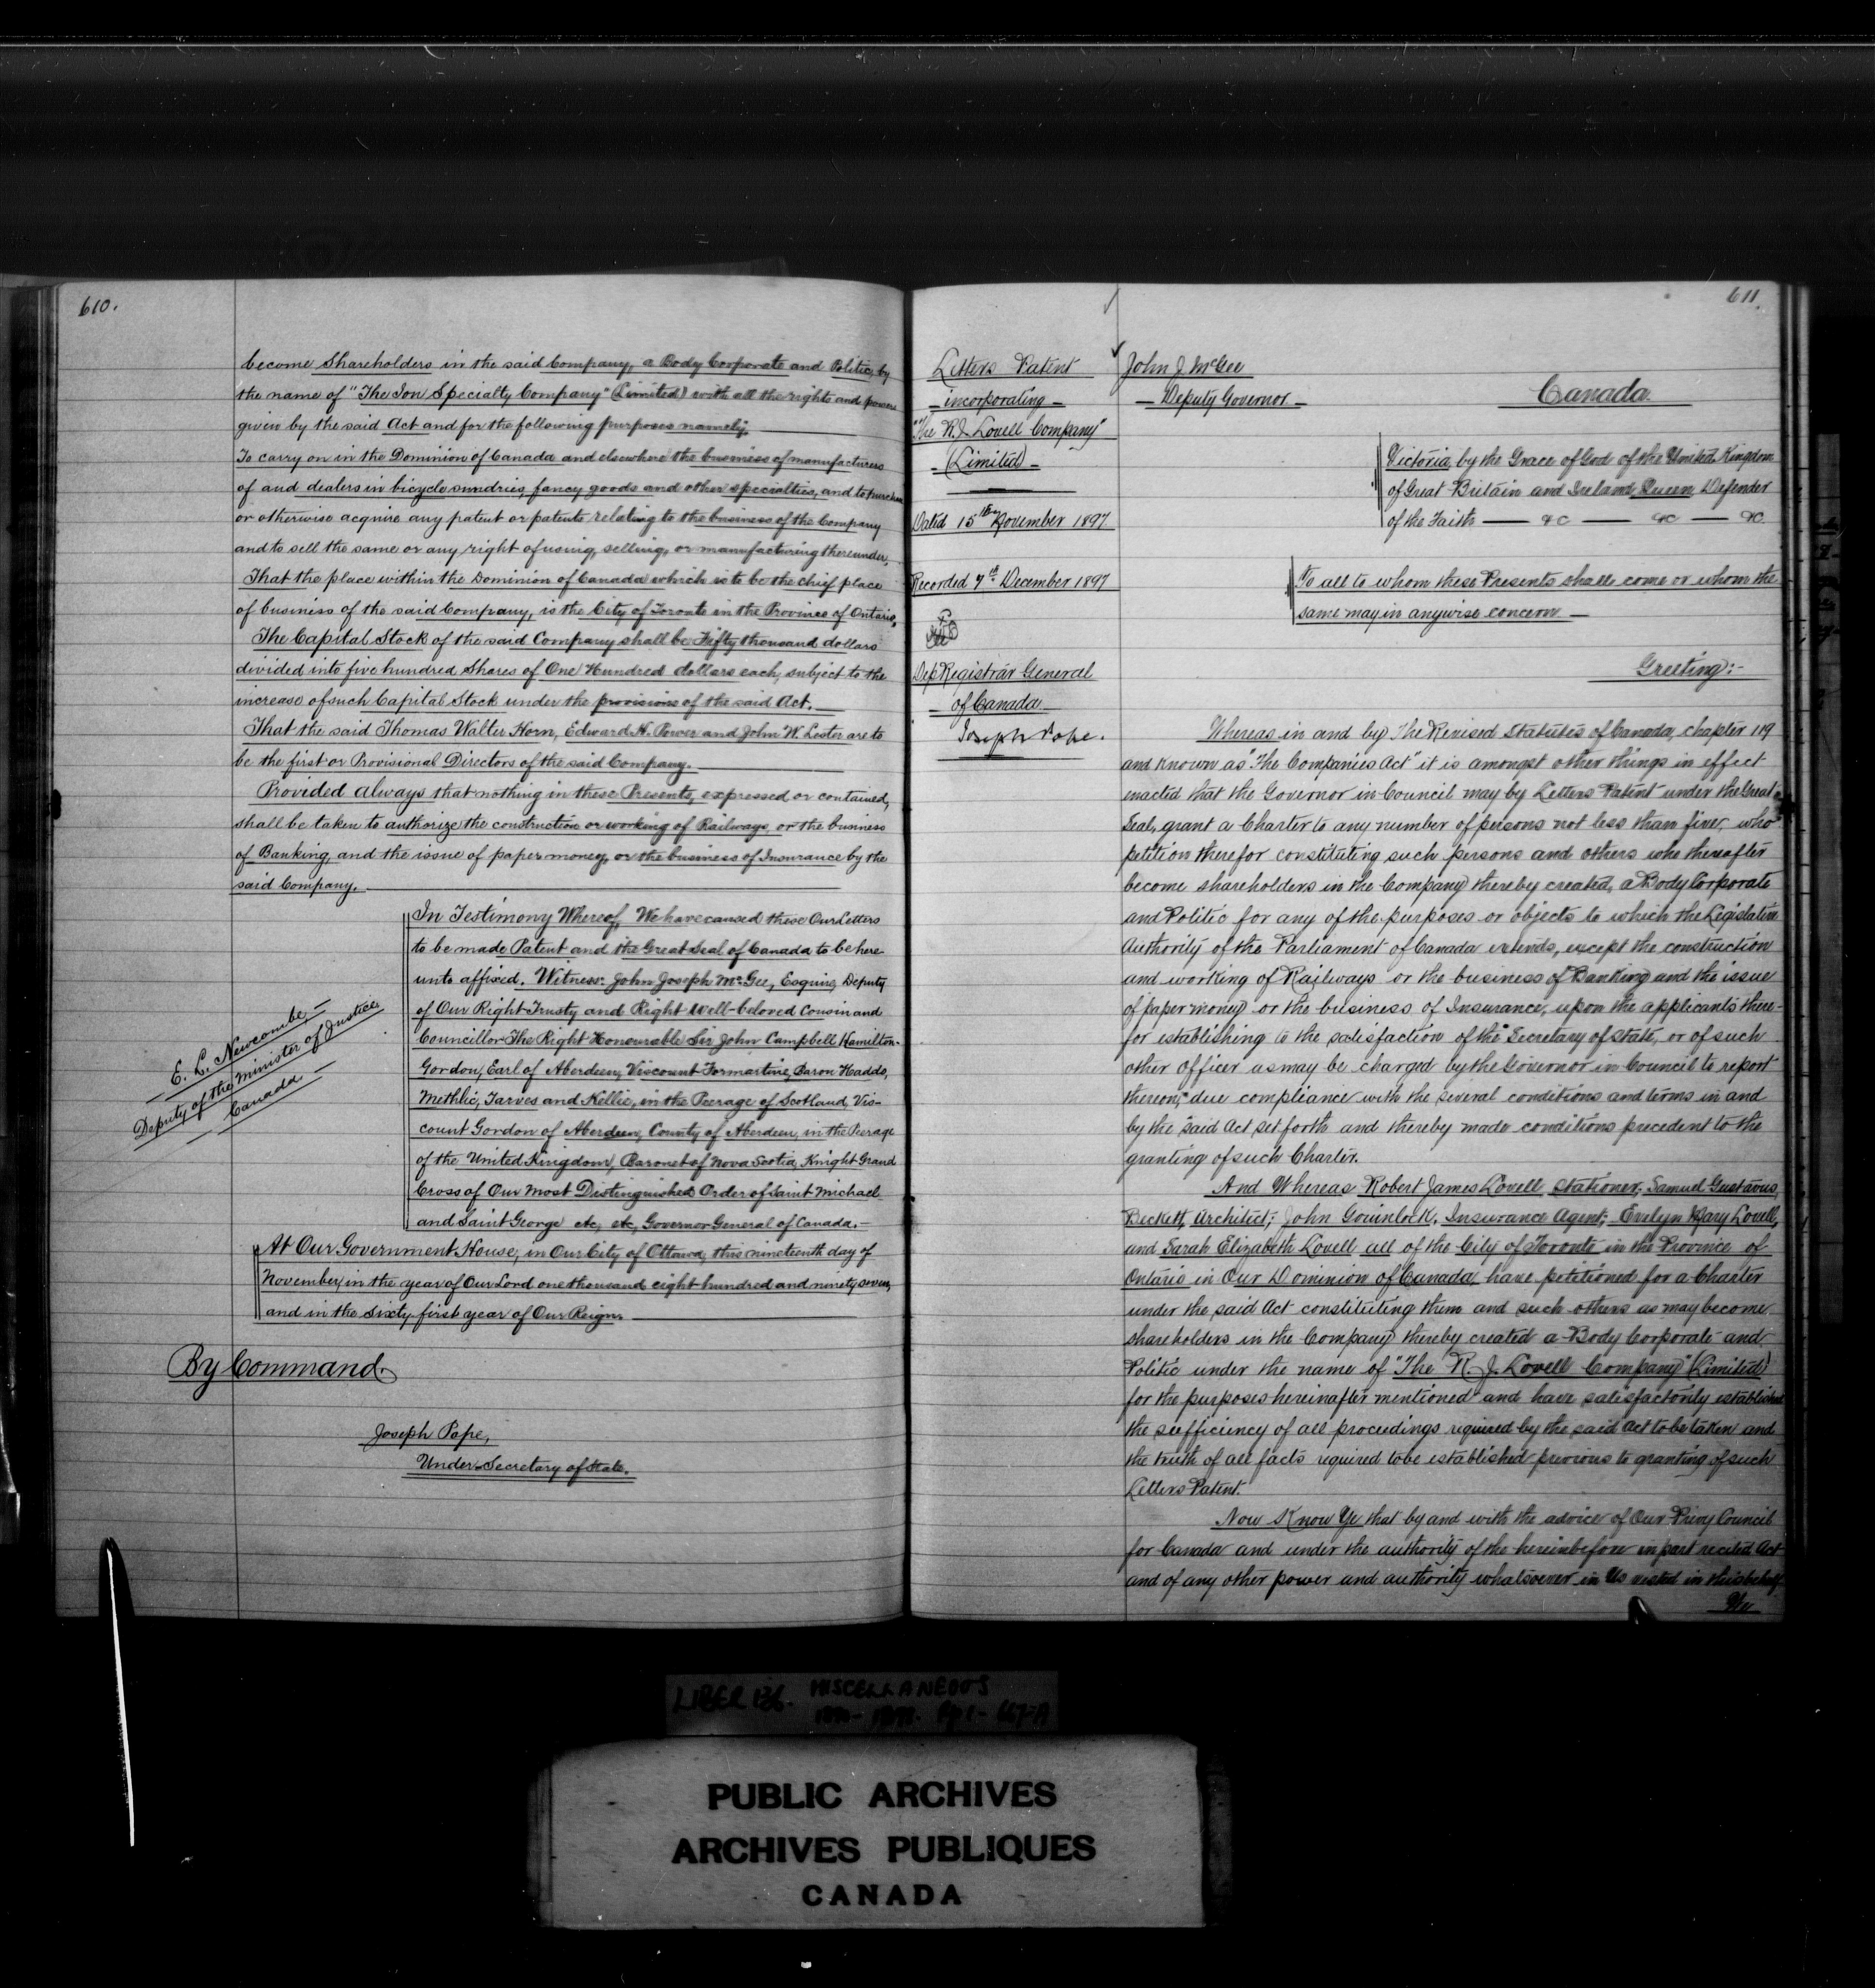 610.
become Shareholders in the said Company, a Body Corporate and Politic, by
the name of "The Ion Specialty Company" (Limited) with all the rights and powers
given by the said Act and for the following purposes namely:
To carry on in the Dominion of Canada and elsewhere the business of manufacturers
of and dealers in bicycle sundries, fancy goods and other specialties, and to purchase
or otherwise acquire any patent or patents relating to the business of the Company
and to sell the same or any right of using, selling, or manufacturing thereunder,
That the place within the Dominion of Canada which is to be the chief place
of business of the said Company, is the City of Toronto in the Province of Ontario,
The Capital Stock of the said Company shall be Fifty thousand dollars
divided into five hundred Shares of One Hundred dollars each, subject to the
increase of such Capital Stock under the provisions of the said Act.
That the said Thomas Walter Horn, Edward H. Power and John W. Lester are to
be the first or Provisional Directors of the said Company.
Provided always that nothing in these Presents, expressed or contained,
shall be taken to authorize the construction or working of Railways, or the business
of Banking, and the issue of paper money, or the business of Insurance by the
said Company.
In Testimony Whereof, We have caused these Our Letters
to be made Patent and the Great Seal of Canada to be here
unto affixed. Witness: John Joseph McGee, Esquire, Deputy
of Our Right Trusty and Right Well-beloved Cousin and
Councillor The Right Honourable Sir John Campbell Hamilton-
Gordon, Earl of Aberdeen, Viscount Formartine, Baron Haddo,
Methlic, Tarves and Kellie, in the Peerage of Scotland, Vis-
count Gordon of Aberdeen, County of Aberdeen, in the Peerage
of the United Kingdom, Baronet of Nova Scotia, Knight Grand
Cross of Our Most Distinguished Order of Saint Michael
and Saint George etc, etc, Governor General of Canada.
At Our Government House, in Our City of Ottawa, this nineteenth day of
November, in the year of Our Lord one thousand eight hundred and ninety seven,
and in the Sixty first year of Our Reign.
E. L. Newcombe,
Deputy of the Minister of Justice
Canada
By Command.
Joseph Pope,
Under-Secretary of State.
611.
Letters Patent
incorporating
"The R.J. Lovell Company"
(Limited)
Dated 15th November 1897
Recorded 7th December 1897
Dep Registrar General
of Canada
Joseph Pope.
John J. McGee
Deputy Governor
Canada.
Victoria, by the Grace of God of the United Kingdom
of Great Britain and Ireland, Queen Defender
of the Faith &c &c &c
To all to whom these Presents shall come or whom the
same may in anywise concern
Greeting:-
Whereas in and by The Revised Statutes of Canada, chapter 119
and known as "The Companies Act" it is amongst other things in effect
enacted that the Governor in Council may by Letters Patent under the Great
Seal, grant a Charter to any number of persons not less than five, who
petition therefor constituting such persons and others who thereafter
become shareholders in the Company thereby created, a Body Corporate
and Politic for any of the purposes or objects to which the Legislative
Authority of the Parliament of Canada extends, except the construction
and working of Railways or the business of Banking and the issue
of paper money or the business of Insurance, upon the applicants there-
for establishing to the satisfaction of the Secretary of State, or of such
other officer as may be charged by the Governor in Council to report
thereon, due compliance with the several conditions and terms in and
by the said Act set forth and thereby made conditions precedent to the
granting of such Charter.
And Whereas Robert James Lovell, Stationer; Samuel Gustavus
Beckett, Architect; John Gouinlock, Insurance Agent; Evelyn Mary Lovell,
and Sarah Elizabeth Lovell all of the City of Toronto in the Province of
Ontario in Our Dominion of Canada, have petitioned for a Charter
under the said Act constituting them and such others as may become
shareholders in the Company thereby created a Body Corporate and
Politic under the name of "The R. J. Lovell Company" (Limited)
for the purposes hereinafter mentioned and have satisfactorily established
the sufficiency of all proceedings required by the said Act to be taken and
the truth of all facts required to be established previous to granting of such
Letters Patent.
Now Know Ye that by and with the advice of Our Privy Council
for Canada and under the authority of the hereinbefore in part recited Act
and of any other power and authority whatsoever in Us vested in this behalf
We
LIBER 136. MISCELLANEOUS
PUBLIC ARCHIVES
ARCHIVES PUBLIQUES
CANADA